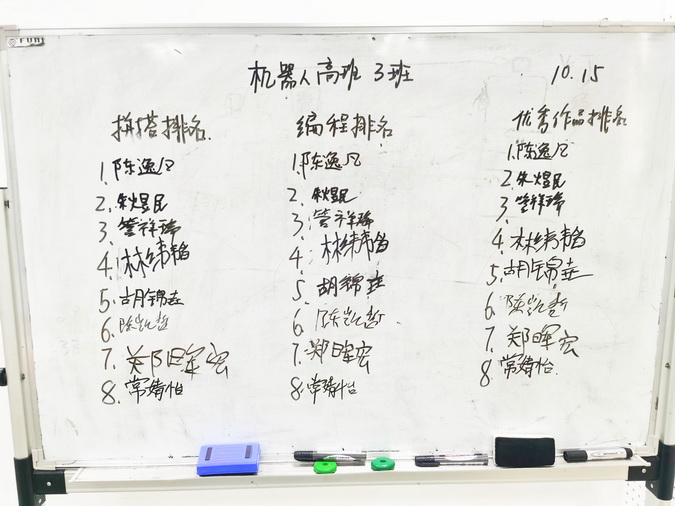 机器人高班 3班 10.15
拼搭排名
1.陈逸凡
2.朱煜民
3.管祥瑞
4.林纬韬
5.胡锦垚
6.陈凯哲
7.郑晖宏
8.常婧怡
编程排名
1.陈逸凡
2.朱煜民
3.管祥瑞
4.林纬韬
5.胡锦垚
6.陈凯哲
7.郑晖宏
8.常婧怡
优秀作品排名
1.陈逸凡
2.朱煜民
3.管祥瑞
4.林纬韬
5.胡锦垚
6.陈凯哲
7.郑晖宏
8.常婧怡